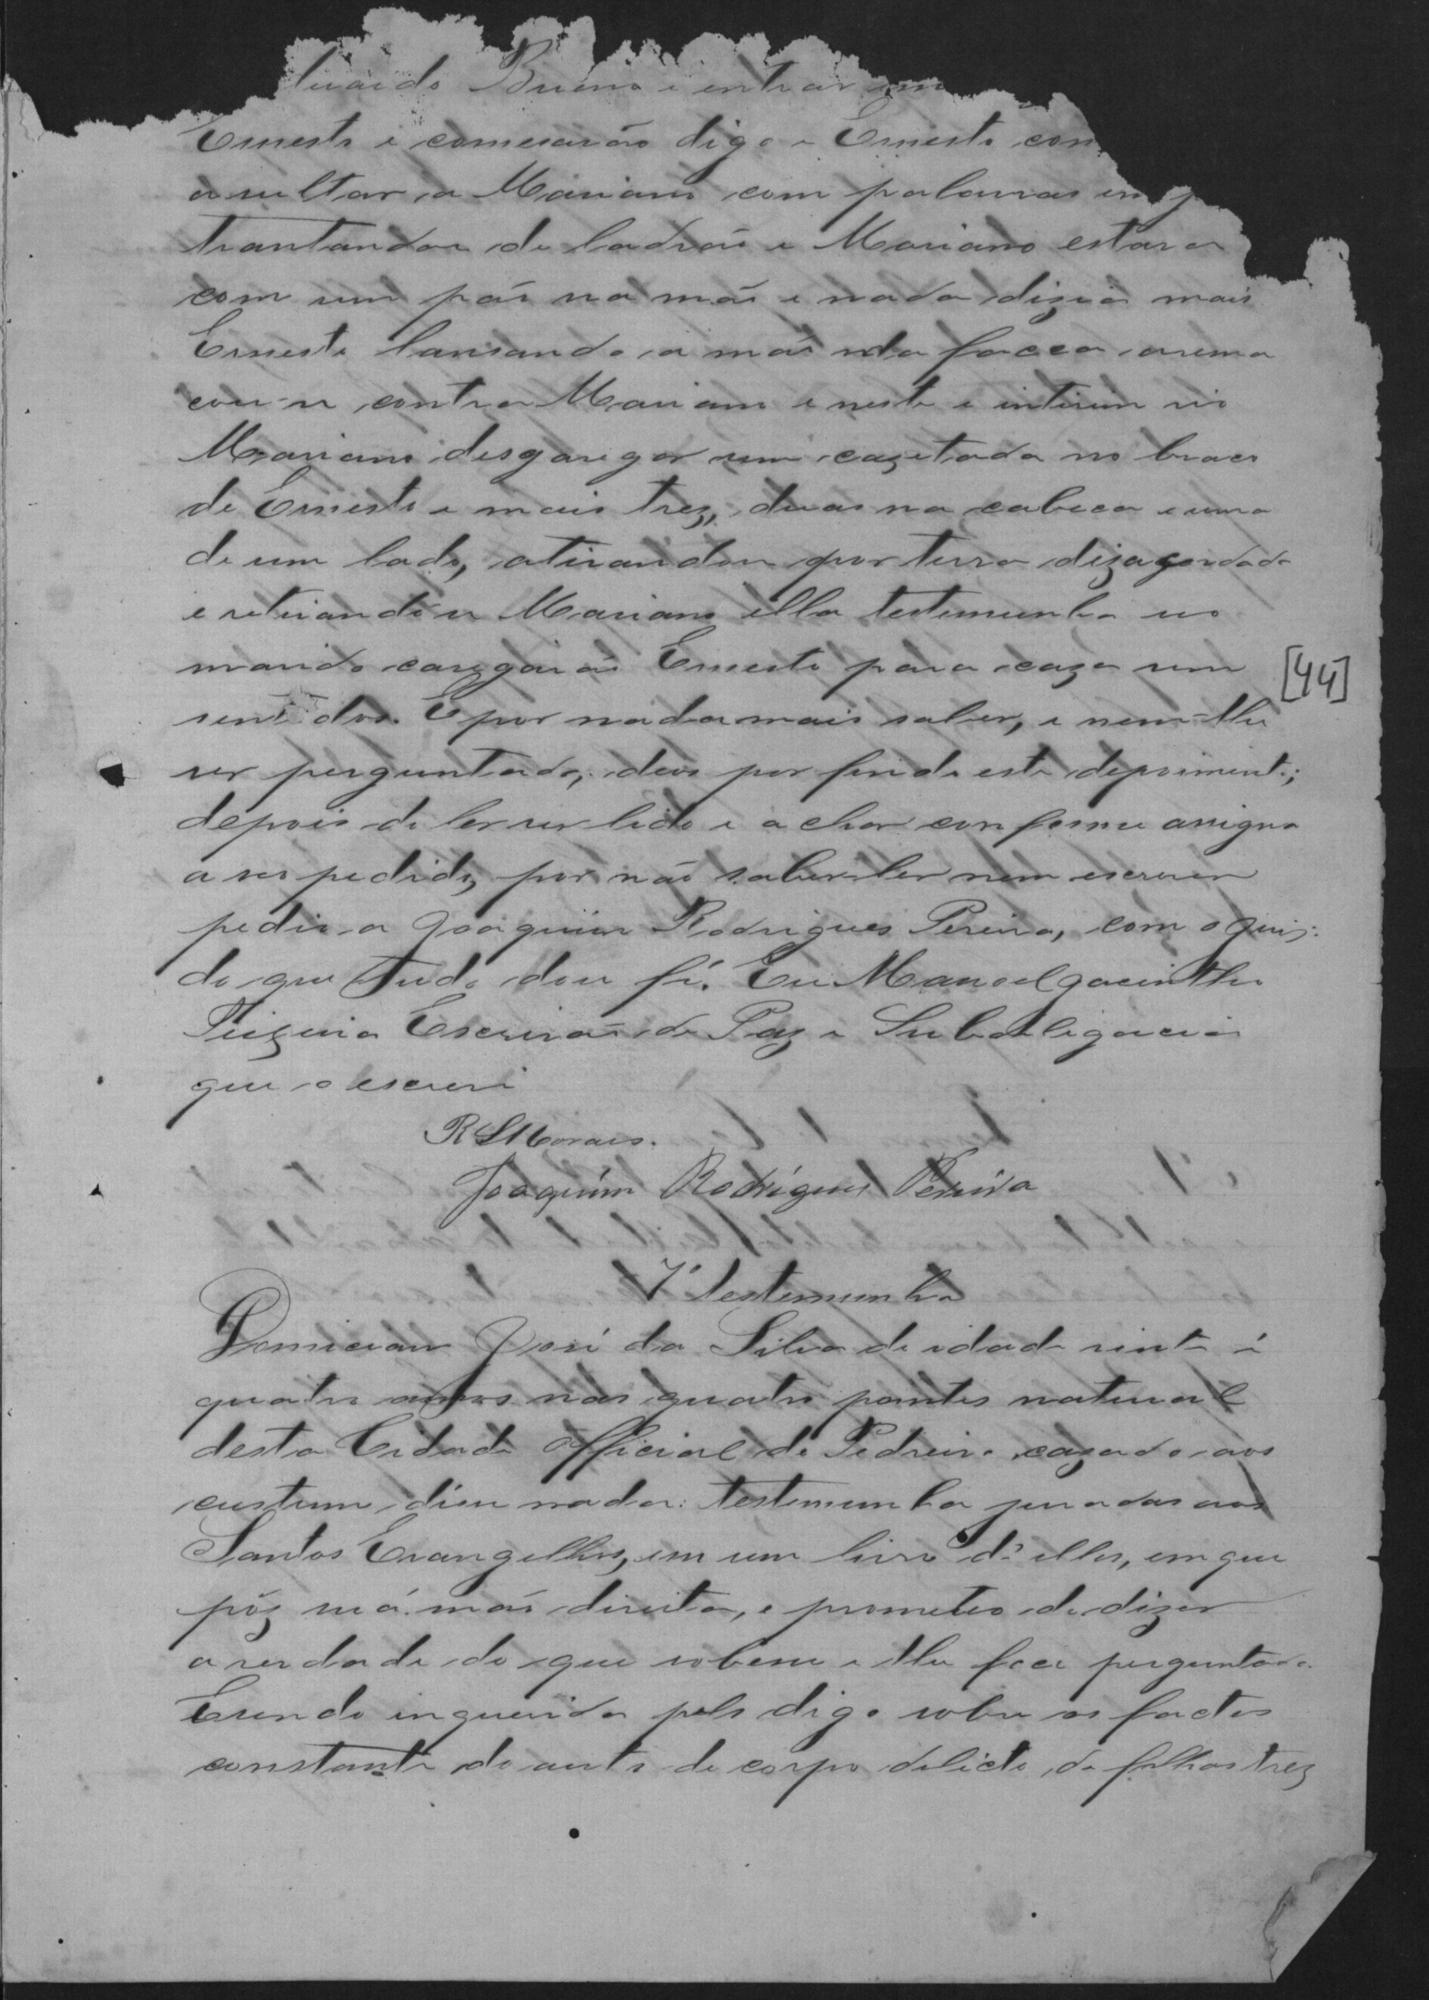 Bueno e entrar em
Ernesto e comesarão digo e Ernesto com
a sultar a Mariano com palavras inj
trantandoo de ladrão e Mariano estava
com um páo na mão e nada dizia mais
Ernesto lansando a mão na facca arema
cou-se contra Mariano e neste e interim vio
Mariano desgaregar um cazetada no braco
de Ernesto e mais trez, duas na cabeca e uma
de um lado, atirandoo por terra dizacordado
e retirandose Mariano ella testemunha seo
marido caregarão Ernesto para caza sem
sentidos. E por nada mais saber, e nem lhe
ser perguntado, deos por findo este depoimento;
depois de ler ser lido e achar conforme assigna
a seo pedido, por não saber ler nem escrever
pedio a Joaquim Rodrigues Pereira, com o Juis;
do que tudo dou fé. Eu Manoel Jacintho
Teixeira Escrivão de Paz e Subdeligacia
que o escrevi
[44]
R S Moraes.
Joaquim Rodrigues Pereira
7ª testemunha
Domiciano José da Silva de idade vinte é
quatro annos nas quatro pontes natural
desta Cidade Official de Pedreiro cazado aos
custume dice nada: testemunha juradas aos
Santos Evangelhos, em um livro d'elles, em que
pôz sua mão direita, e prometeo de dizer
a verdade do que sobece e lhe foce perguntado.
Esendo inquerida pelo digo sobre os factos
constante do auto de corpo delicto de folhas trez